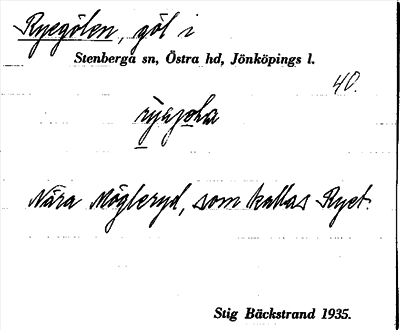 Ryegölen, göl i
Stenberga sn, Östra hd, Jönköpings l.
40.
Nära Mögleryd, som kallas Ryet.
Stig Bäckstrand 1935.